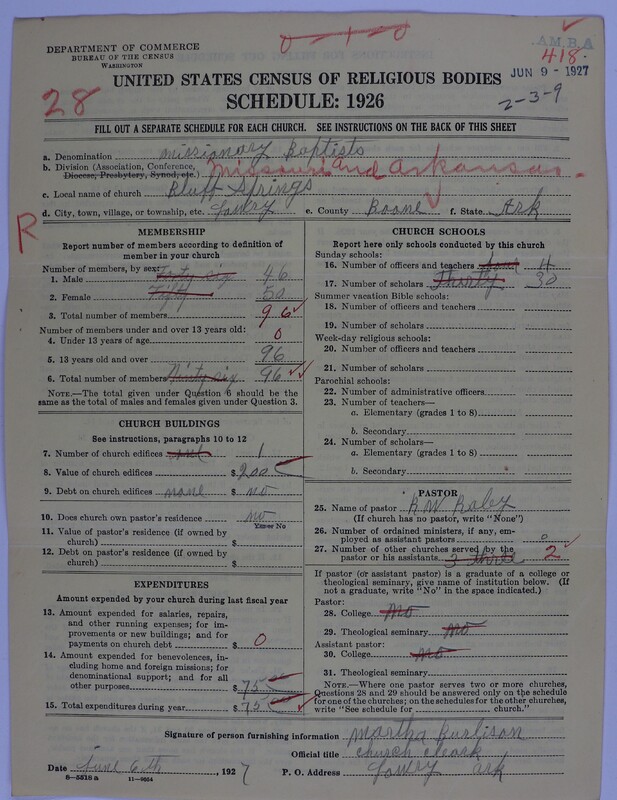 0-1-0
DEPARTMENT OF COMMERCE
BUREAU OF THE CENSUS
WASHINGTON
A.M.B.A
418.
JUN 9 - 1927
2-3-9
28
UNITED STATES CENSUS OF RELIGIOUS BODIES
SCHEDULE: 1926
FILL OUT A SEPARATE SCHEDULE FOR EACH CHURCH. SEE INSTRUCTIONS ON THE BACK OF THIS SHEET
a. Denomination Missionary Baptists
b. Division (Association, Conference, Diocese, Presbytery, Synod, etc.) Missouri and Arkansas.
c. Local name of church Bluff Springs
d. City, town, village, or township, etc. Lowry e. County Boone f. State Ark
R
MEMBERSHIP
Report number of members according to definition of
member in your church
Number of members, by sex:
1. Male Forty six 46
2. Female Fifty 50
3. Total number of members 96
Number of members under and over 13 years old:
4. Under 13 years of age 0
5. 13 years old and over 96
6. Total number of members Ninty six 96
NOTE.—The total given under Question 6 should be the
same as the total of males and females given under Question 3.
CHURCH BUILDINGS
See instructions, paragraphs 10 to 12
7. Number of church edifices one 1
8. Value of church edifices $ 200
9. Debt on church edifices none $ no
10. Does church own pastor's residence no
Yes or No
11. Value of pastor's residence (if owned by
church) $
12. Debt on pastor's residence (if owned by
church) $
EXPENDITURES
Amount expended by your church during last fiscal year
13. Amount expended for salaries, repairs,
and other running expenses; for im-
provements or new buildings; and for
payments on church debt $ 0
14. Amount expended for benevolences,
including home and foreign missions; for
denominational support; and for all
other purposes $ 75
15. Total expenditures during year $ 75
CHURCH SCHOOLS
Report here only schools conducted by this church
Sunday schools:
16. Number of officers and teachers four 4
17. Number of scholars Thirty 30
Summer vacation Bible schools:
18. Number of officers and teachers
19. Number of scholars
Week-day religious schools:
20. Number of officers and teachers
21. Number of scholars
Parochial schools:
22. Number of administrative officers
23. Number of teachers—
a. Elementary (grades 1 to 8)
b. Secondary
24. Number of scholars—
a. Elementary (grades 1 to 8)
b. Secondary
PASTOR
25. Name of pastor R.W. Raley
(If church has no pastor, write "None")
26. Number of ordained ministers, if any, em-
ployed as assistant pastors 0
27. Number of other churches served by the
pastor or his assistants 3 three 2
If pastor (or assistant pastor) is a graduate of a college or
theological seminary, give name of institution below. (If
not a graduate, write "No" in the space indicated.)
Pastor:
28. College No
29. Theological seminary No
Assistant pastor:
30. College No
31. Theological seminary
NOTE.—Where one pastor serves two or more churches,
Questions 28 and 29 should be answered only on the schedule
for one of the churches; on the schedules for the other churches,
write "See schedule for church."
Signature of person furnishing information Martha Burlison
Official title church cleark
Date June 6th, 1927 P. O. Address Lowry Ark
8-5518a 11-9054